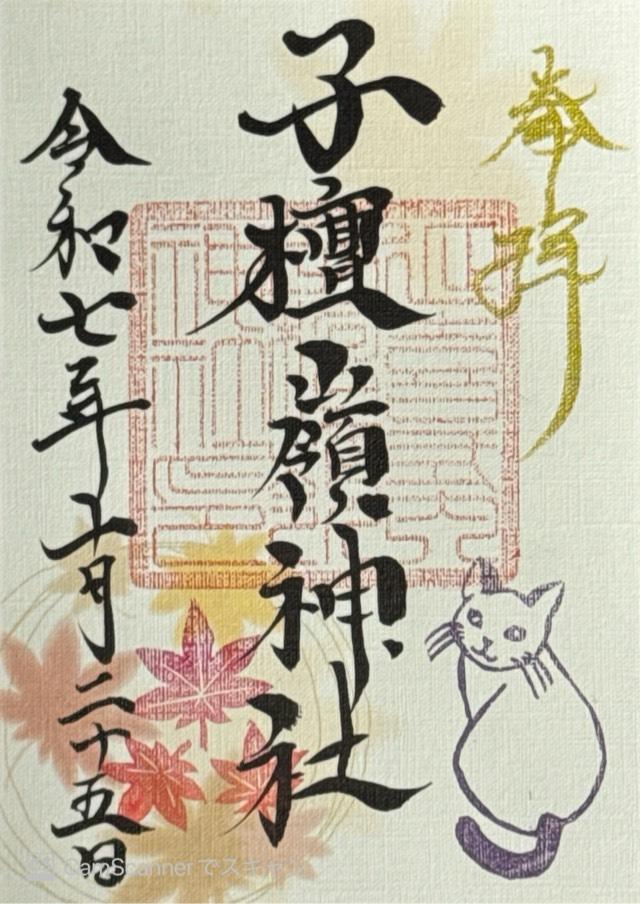 奉拝
子檀嶺神社
令和七年十月二十五日
CamScanner でスキャン